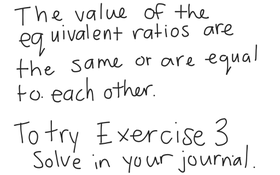 The value of the
equivalent ratios are
the same or are equal
to each other.
To try Exercise 3
Solve in your journal.